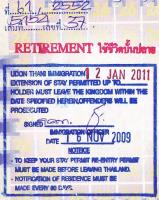 RETIREMENT ใช้ชีวิตบั้นปลาย
UDON THANI IMMIGRATION
EXTENSION OF STAY PERMITTED UP TO 12 JAN 2011
HOLDER MUST LEAVE THE KINGDOM WITHIN THE
DATE SPECIFIED HEREIN.OFFENDERS WILL BE
PROSECUTED
SIGNED
IMMIGRATION OFFICER
DATE 16 NOV 2009
NOTICE
- TO KEEP YOUR STAY PERMIT RE-ENTRY PERMIT
MUST BE MADE BEFORE LEAVING THAILAND.
- NOTIFICATION OF RESIDENCE MUST BE
MADE EVERY 90 DAYS.